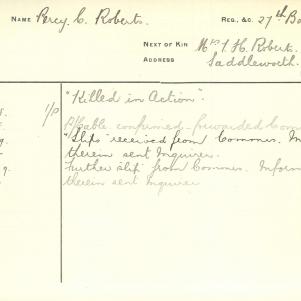 NAME Percy C. Roberts. REG., &C. 27th Ba
NEXT OF KIN Mrs I. H. Roberts.
ADDRESS Saddleworth.
1/P "Killed in Action".
Cable confirmed forwarded Com
"Slip" received from Commrs. In
therein sent Inquirer.
Further slip from Commrs. Inform
therein sent Inquirer